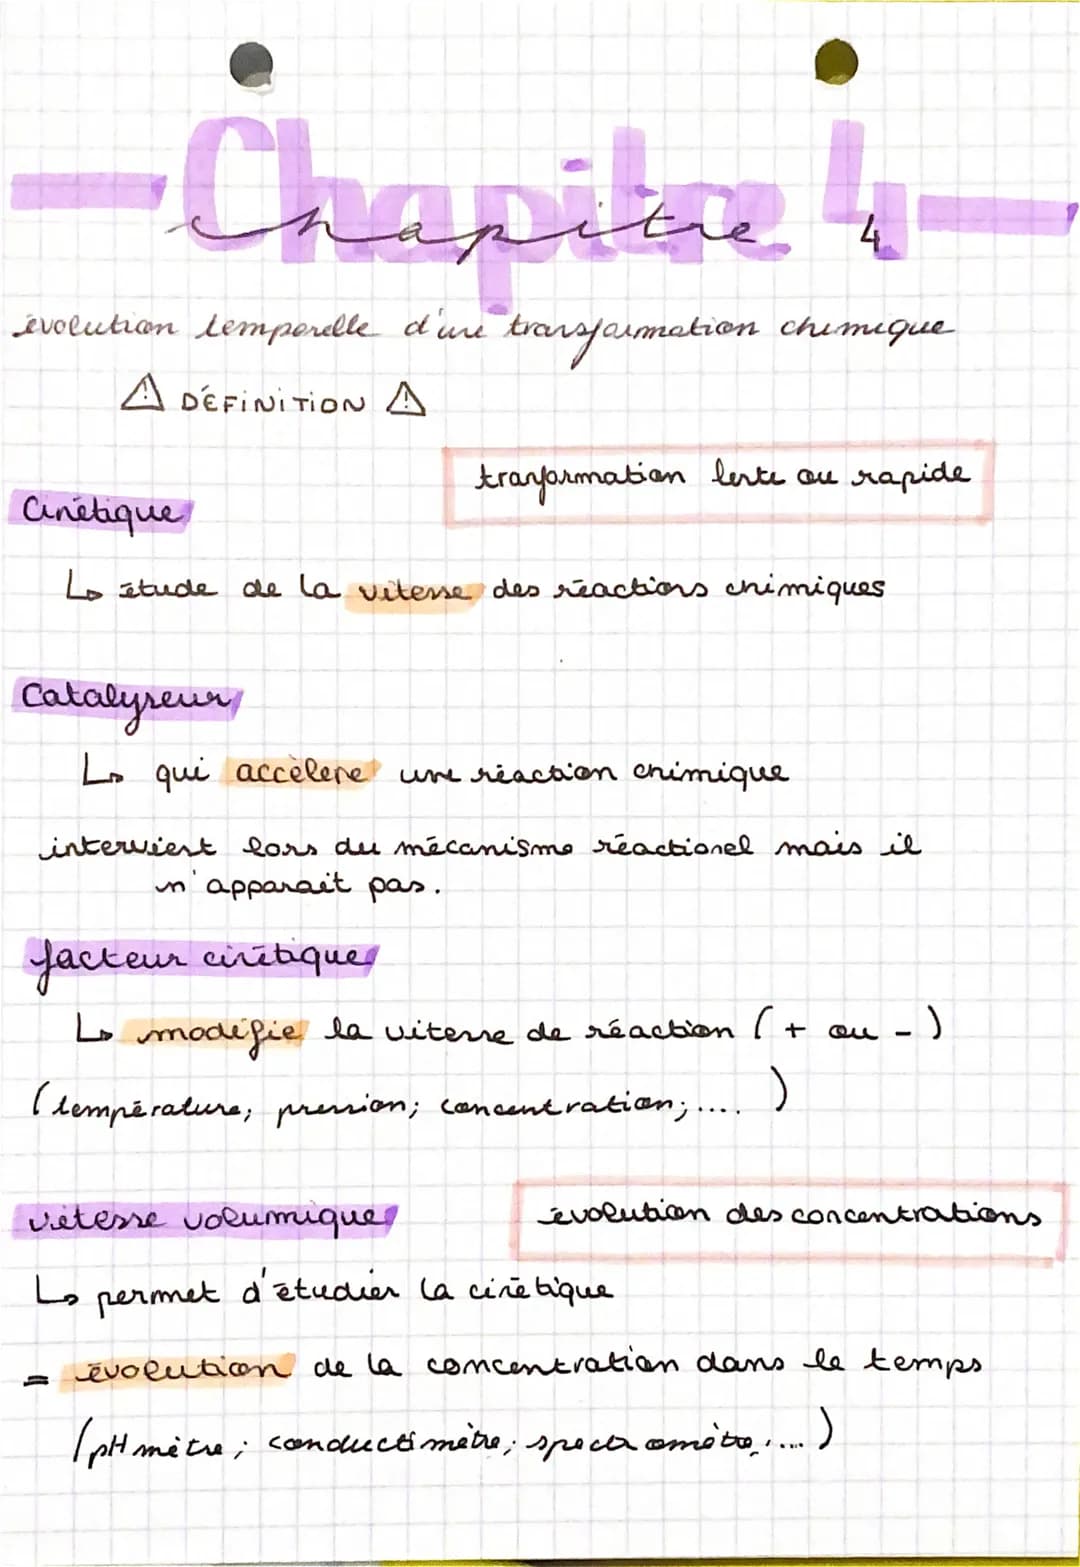 Chapitre 4
chapitre 4
évolution temporelle d'une transformation chimique
⚠ DÉFINITION ⚠
tranformation lente ou rapide
Cinétique
↳ étude de la vitesse des réactions chimiques
Catalyseur
↳ qui accélère une réaction chimique
intervient lors du mécanisme réactionel mais il
n'apparait pas.
facteur cinétique
↳ modifie la vitesse de réaction (+ ou -)
(température; pression; concentration;.... )
vitesse volumique
évolution des concentrations
↳ permet d'étudier la cinétique
= évolution de la concentration dans le temps
(pH mètre; conductimètre; spectromètre;....)